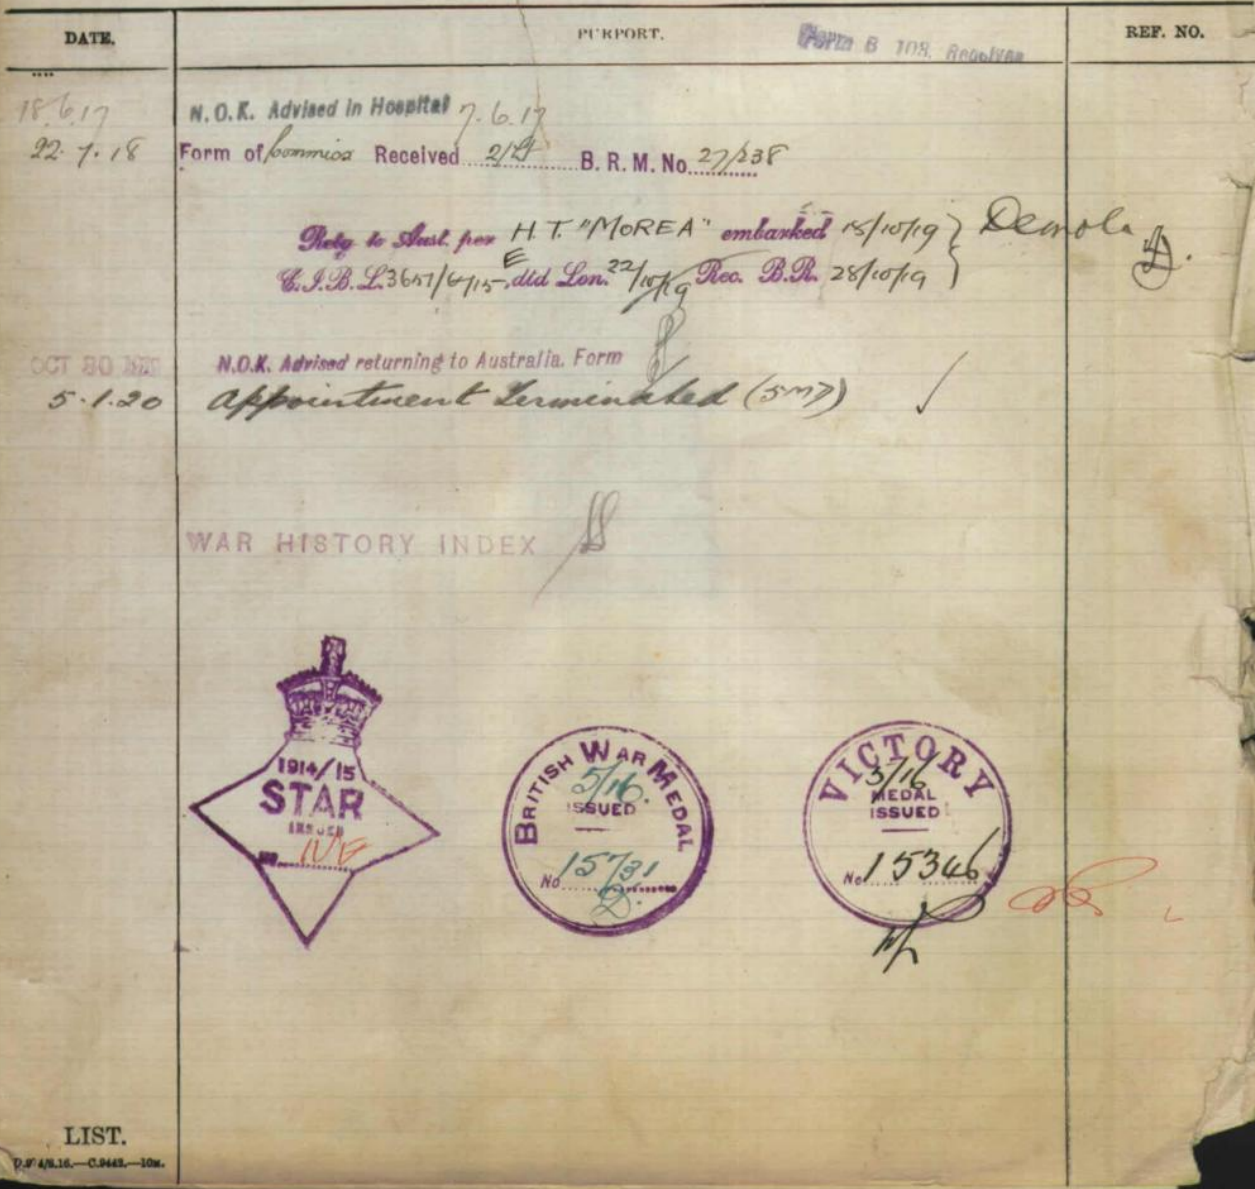 DATE. PURPORT. REF. NO.
Form B 103. Received
18.6.17 N.O.K. Advised in Hospital 7.6.17
22.7.18 Form of Received B. R. M. No. 27/238
Retg to Aust. per H.T. "MOREA" embarked 15/10/19 } Demob
L 3657/ E dtd Lon. 22/10/19 Rec. B.R. 28/10/19 }
OCT 30 N.O.K. Advised returning to Australia. Form
5.1.20 Appointment terminated (5 MD)
WAR HISTORY INDEX
1914/15
STAR
ISSUED
No. NE
BRITISH WAR MEDAL
5/16.
ISSUED
No 15731
VICTORY
5/16
MEDAL
ISSUED
No 15346
LIST.
C.9442.—10M.